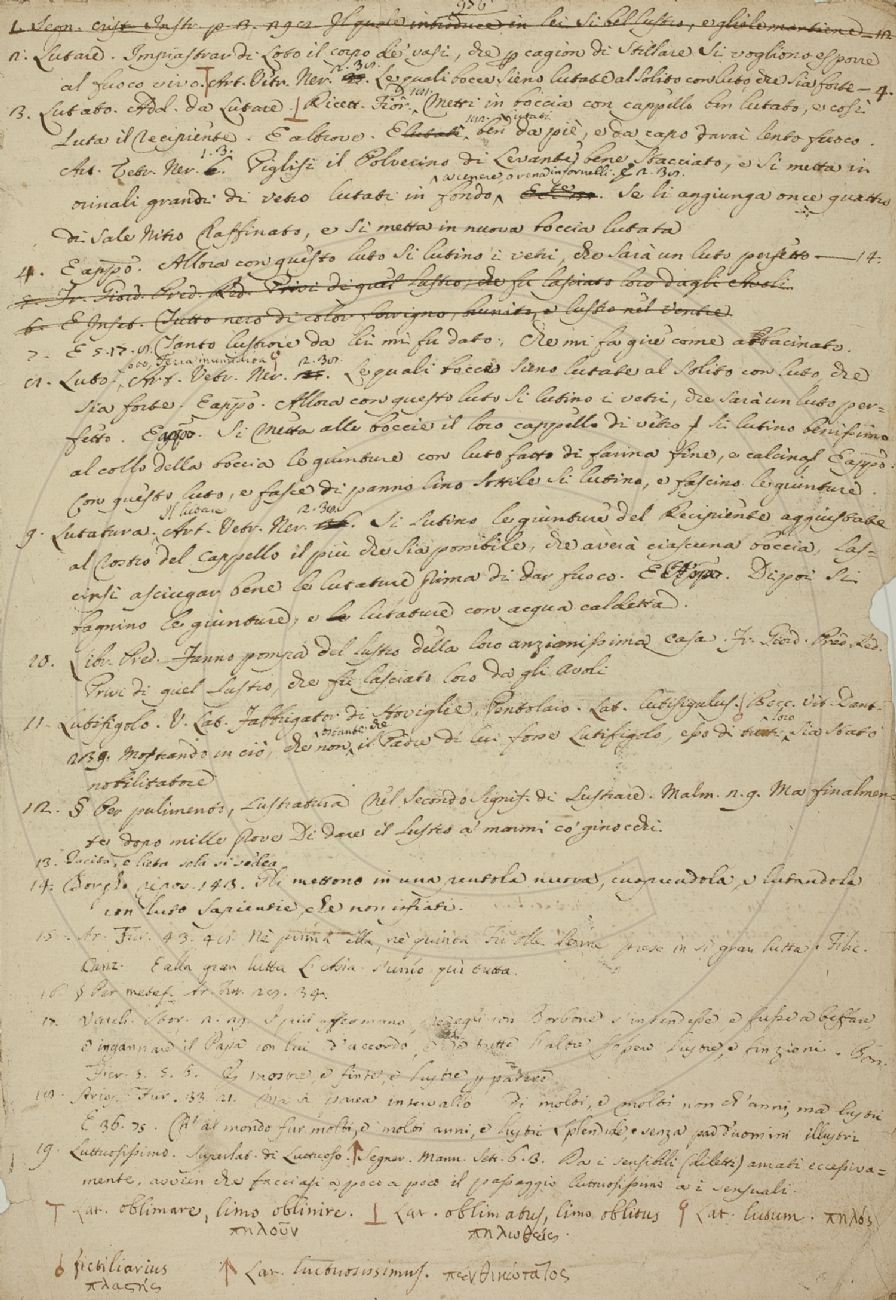 956
1. Segn. Crist. Instr. p. 2. 292. Il quale introduce in lei sì bel lustro, e gliele mantiene
2. Lutare. Impiastrar di Loto il corpo de' vasi, che p cagion di stillare si vogliono esporre
al fuoco vivo. Art. Vetr. Ner. 2. 30. Le quali bocce sieno lutate al solito con luto che sia forte — 4.
3. Lutato. Add. da Lutare. ⊥ Ricett. Fior. 101. Metti in boccia con cappello ben lutato, e così
luta il recipiente. E altrove. E lutati ben da piè, e da capo darai lento fuoco.
Art. Vetr. Ner. 1. 3. Piglisi il Polverino di Levante bene stacciato, e si metta in
a cenere, o rena in fornelli. E 2. 30.
orinali grandi di vetro lutati in fondo. Se li aggiunga once quattro
di Sale Nitro Raffinato, e si metta in nuova boccia lutata
4. E appo. Allora con questo luto si lutino i vetri, che sarà un luto perfetto — 14.
5. Fr. Giord. Pred. Red. Privi di quel lustro, che fu lasciato loro dagli Avoli
6. E Inset. Tutto nero di color lustro nel ventre
7. E 5. 17. Tanto lustrore da lui mi fu dato, che mi fa gire come abbacinato.
loto, Terra inumidita
8. Luto, Art. Vetr. Ner. 2. 30. Le quali bocce siano lutate al solito con luto che
sia forte. E appo. Allora con questo luto si lutino i vetri, che sarà un luto per-
fetto. E appo. Si metta alle boccie il loro cappello di vetro si lutino benissimo
al collo della boccia le giunture con luto fatto di farina fine, e calcina E appo.
Con questo luto, e fasce di panno lino sottile si lutino, e fascino le giunture.
Il lutare
9. Lutatura. Art. Vetr. Ner. 2. 30. Si lutino le giunture del Recipiente aggiustate
al rostro del cappello il più che sia possibile, che averà ciascuna boccia, Las-
cinsi asciugar bene le lutature prima di dar fuoco. E Appo. Dipoi si
bagnino le giunture, e le lutature con acqua caldetta.
10. Libr. Pred. Fanno pompa del lustro della loro anzianissima casa. Fr. Giord. Pred. Red.
Privi di quel lustro, che fu lasciato loro da gli Avoli
11. Lutifigolo. V. Lat. Fabbricator di stoviglie, Pentolaio. Lat. lutifigulus. Bocc. Vit. Dant.
239. Mostrando in ciò, che non il Padre di lui fosse Lutifigolo, esso di loro sia stato
nobilitatore
12. § Per pulimento, Lustratura Nel secondo signif. di Lustrare. Malm. 2. 9. Ma finalmen-
te dopo mille prove Di dare il lustro a' marmi co' ginocchi.
13. Tacita, e lieta sola si sedea
14. Borgh. 143. Gli mettono in una pentola nuova, cuoprendola, e lutandola
con luto sapientie, che non isfiati.
15. Ar. Fur. 43. 48. Nè prima ella, nè quinta prese in sì gran lutta. Filic.
Canz. E alla gran lutta
16. § Per metaf. Ar. Fur. 29. 34.
17. Varch. Stor. 2. I più affermano, ch'egli con Borbone s'intendesse e fusse a beffare
e ingannare il Papa con lui d'accordo, e che tutte l'altre fussero lustre, e finzioni.
Fier. 5. 5. 6. E mostre, e finte, e lustre p parere
18. Arios. Fur. 33. 21. Ma intervallo di molti, e molti non ch'anni, ma lustri
E 36. 75. Ch'al mondo fur molti, e molti anni, e lustri splendide, e senza par d'uomini illustri
19. Luttuosissimo. Superlat. di Luttuoso. ↑ Segner. Mann. Sett. 6. 3. Da i sensibili (diletti) amati eccessiva-
mente, avvien che facciasi a poco a poco il passaggio luttuosissimo a i sensuali.
⊤ Lat. oblimare, limo oblinire. ⊥ Lat. oblimatus, limo oblitus ♀ Lat. lutum. πηλός
πηλοῦν πηλωθείς.
♂ fictiliarius ↑ Lat. luctuosissimus. πενθικώτατος
πλαστής